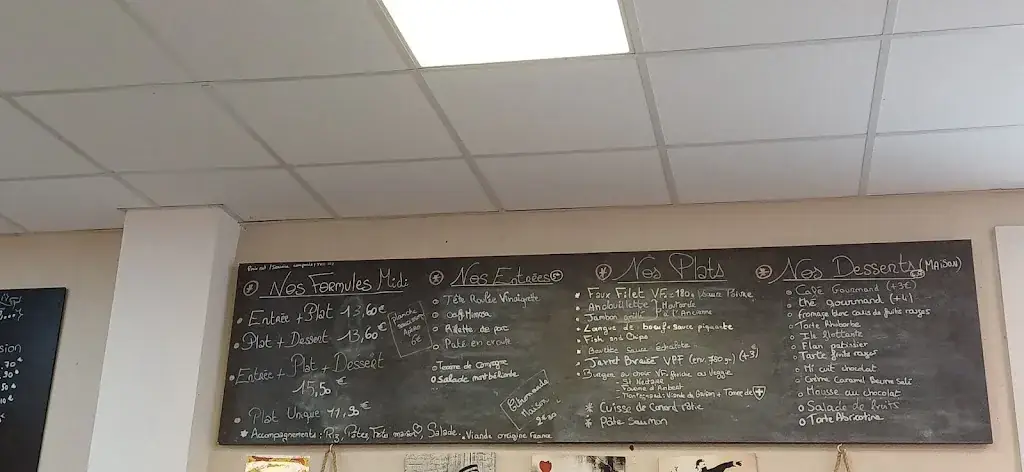 Nos Formules Midi
Entrée + Plat 13,60€
Plat + Dessert 13,60€
Entrée + Plat + Dessert
15,50€
Plat Unique 11,50€
Accompagnements : Riz, Pâtes, Frites maison, Salade. Viande origine France
Planche
Apéro
6€
Nos Entrées
Tête Roulée Vinaigrette
Oeuf Mimosa
Rillette de porc
Paté en croute
Terrine de campagne
Salade montbéliarde
Citronnade
Maison
2€50
Nos Plats
Faux Filet VF. 180g sauce Poivre
Andouillette Moutarde
Jambon grillé à l'Ancienne
Langue de boeuf sauce piquante
Fish and Chips
Bavette sauce échalote
Jarret Braisé VPF (env. 780gr) (+3€)
Burger au choix VF, Poulet ou Veggie
St Nectaire
Fourme d'Ambert
Montagnard: Viande de Grison + Tomme de
Cuisse de Canard rôtie
Pâte Saumon
Nos Desserts (MAISON)
Café Gourmand (+3€)
thé gourmand (+4)
fromage blanc coulis de fruits rouges
Tarte Rhubarbe
Ile flottante
Flan patissier
Tarte fruits rouges
Mi cuit chocolat
Crème Caramel Beurre Salé
Mousse au chocolat
Salade de fruits
Tarte Abricotine